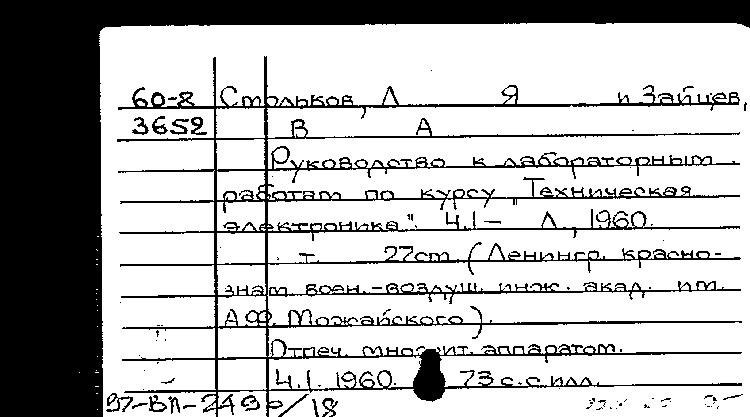 60-8 Стольков, Л Я и Зайцев,
3652 В А
Руководство к лабораторным
работам по курсу „Техническая
электроника". Ч.I— Л., 1960.
т. 27cm. (Ленингр. красно-
знам. воен.-воздуш. инж. акад. им.
А.Ф. Можайского).
Отпеч. множит. аппаратом.
Ч.I. 1960. 73 с. с илл.
97-ВП-249р/18